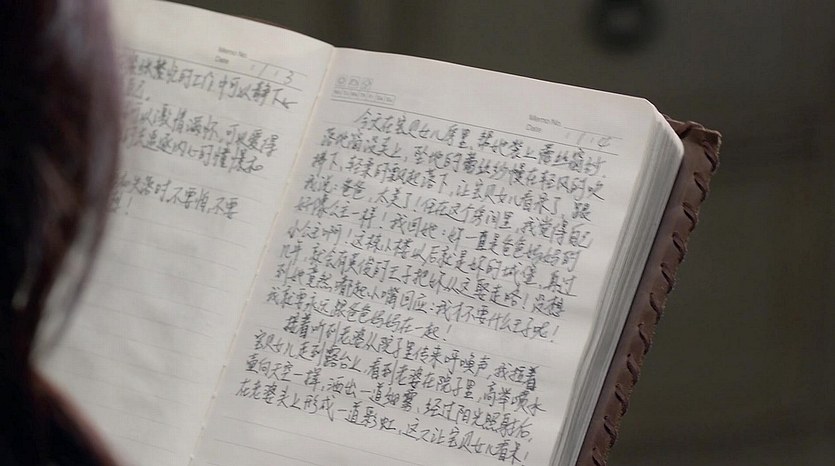 Memo No.
Date 1 / 3
的工作中可以静下
满怀,可以
内心的
时不要怕,不要
!
Memo No.
Date 1 / 4
今天在宝贝女儿房里,帮她装上蕾丝窗纱.
落地窗没关上,垫地的蕾丝纱幔在轻风的吹
拂下,轻柔的飘起落下,让宝贝女儿看呆了,跟
我说:爸爸,太美了!住在这个房间里,我觉得自己
好像公主一样!我回她:妳一直是爸爸妈妈的
小公主啊!这栋小楼以后就是妳的城堡,再过
几年,就会有英俊的王子把妳从这娶走咯!没想
到她竟然噘起小嘴回应:我才不要什么王子呢!
我就要永远跟爸爸妈妈在一起!
接着听到老婆从院子里传来呼唤声,我抱着
宝贝女儿走到露台上,看到老婆在院子里,高举喷水
壶向天空一挥,洒出一道烟雾,经过阳光照射后,
在老婆头上形成一道彩虹,这又让宝贝女儿看呆!